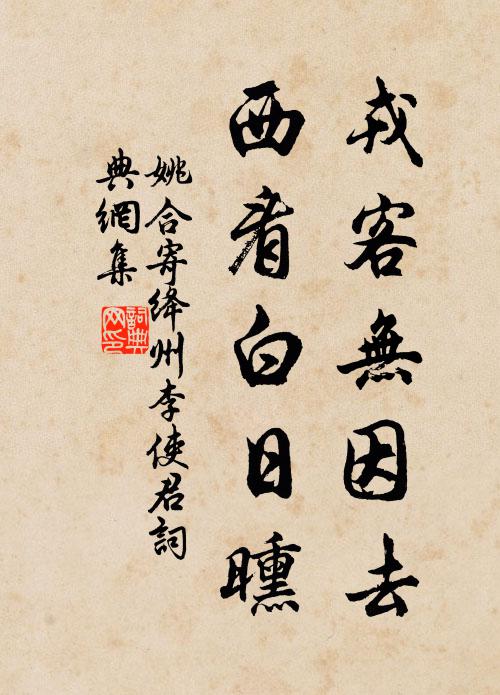 戎客無因去
西看白日曛
姚合寄绛州李使君詞
典網集
詞典
网印